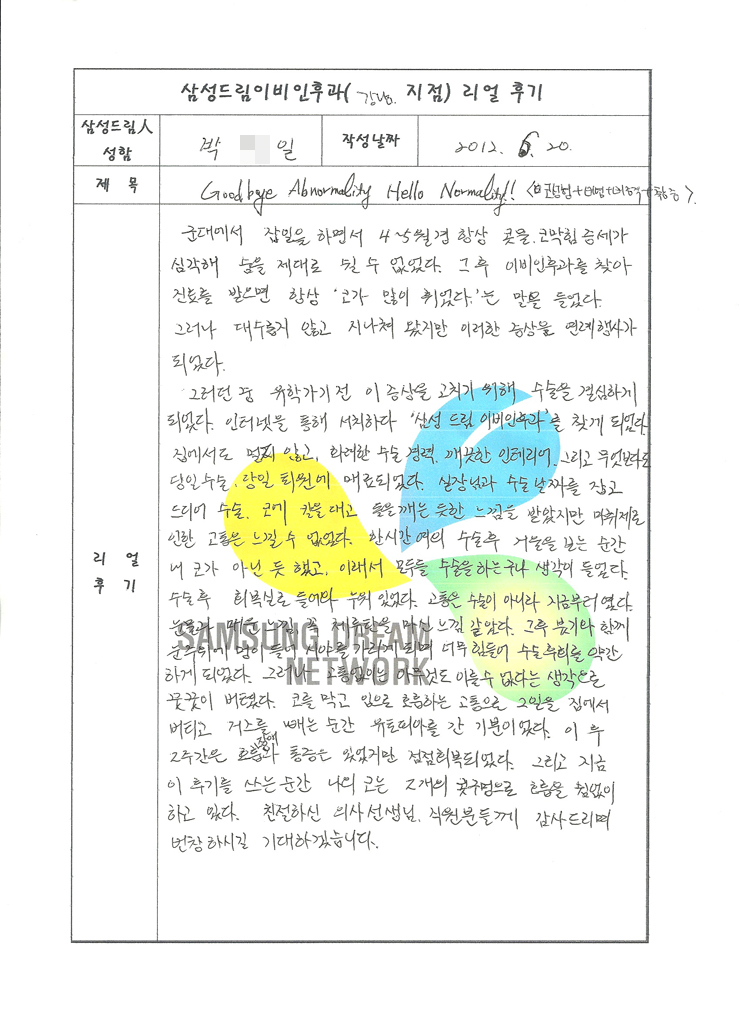 삼성드림이비인후과( 강남. 지점) 리얼 후기
삼성드림人
성함
박 일
작성날짜
2012. 6. 20.
제 목
Goodbye Abnormality Hello Normality!!
리 얼
후 기
군대에서 잡일을 하면서 4~5월경 항상 콧물, 코막힘 증세가
심각해 숨을 제대로 쉴 수 없었다. 그 후 이비인후과를 찾아
진료를 받으면 항상 '코가 많이 휘었다.'는 말을 들었다.
그러나 대수롭지 않고 지나쳐 왔지만 이러한 증상을 연례행사가
되었다.
그러던 중 유학가기 전 이 증상을 고치기 위해 수술을 결심하게
되었다. 인터넷을 통해 서치하다 '삼성 드림 이비인후과'를 찾게 되었다.
집에서도 멀지 않고, 화려한 수술 경력, 깨끗한 인테리어, 그리고 무엇보다도
당일수술, 당일 퇴원에 매료되었다. 실장님과 수술 날짜를 잡고
드디어 수술. 코에 칼을 대고 돌을 깨는 듯한 느낌을 받았지만 마취제로
인한 고통은 느낄 수 없었다. 한시간 여의 수술후 거울을 보는 순간
내 코가 아닌 듯 했고, 이래서 모두들 수술을 하는구나 생각이 들었다.
수술후 회복실로 들어와 누워 있었다. 고통은 수술이 아니라 지금부터였다.
눈물과 매운 느낌 꼭 최루탄을 마신 느낌 같았다. 그후 붓기와 함께
눈주위에 멍이 들어 시야를 가리게 되며 너무 힘들어 수술후회를 약간
하게 되었다. 그러나 고통없이는 아무것도 이룰 수 없다는 생각으로
꿋꿋이 버텼다. 코를 막고 입으로 호흡하는 고통으로 2일을 집에서
버티고 거즈를 빼는 순간 유토피아를 간 기분이었다. 이 후
2주간은 호흡장애와 통증은 있었지만 점점회복되었다. 그리고 지금
이 후기를 쓰는 순간 나의 코는 2개의 콧구멍으로 호흡을 힘없이
하고 있다. 친절하신 의사선생님, 직원분들께 감사드리며
번창하시길 기대하겠습니다.
SAMSUNG DREAM
NETWORK